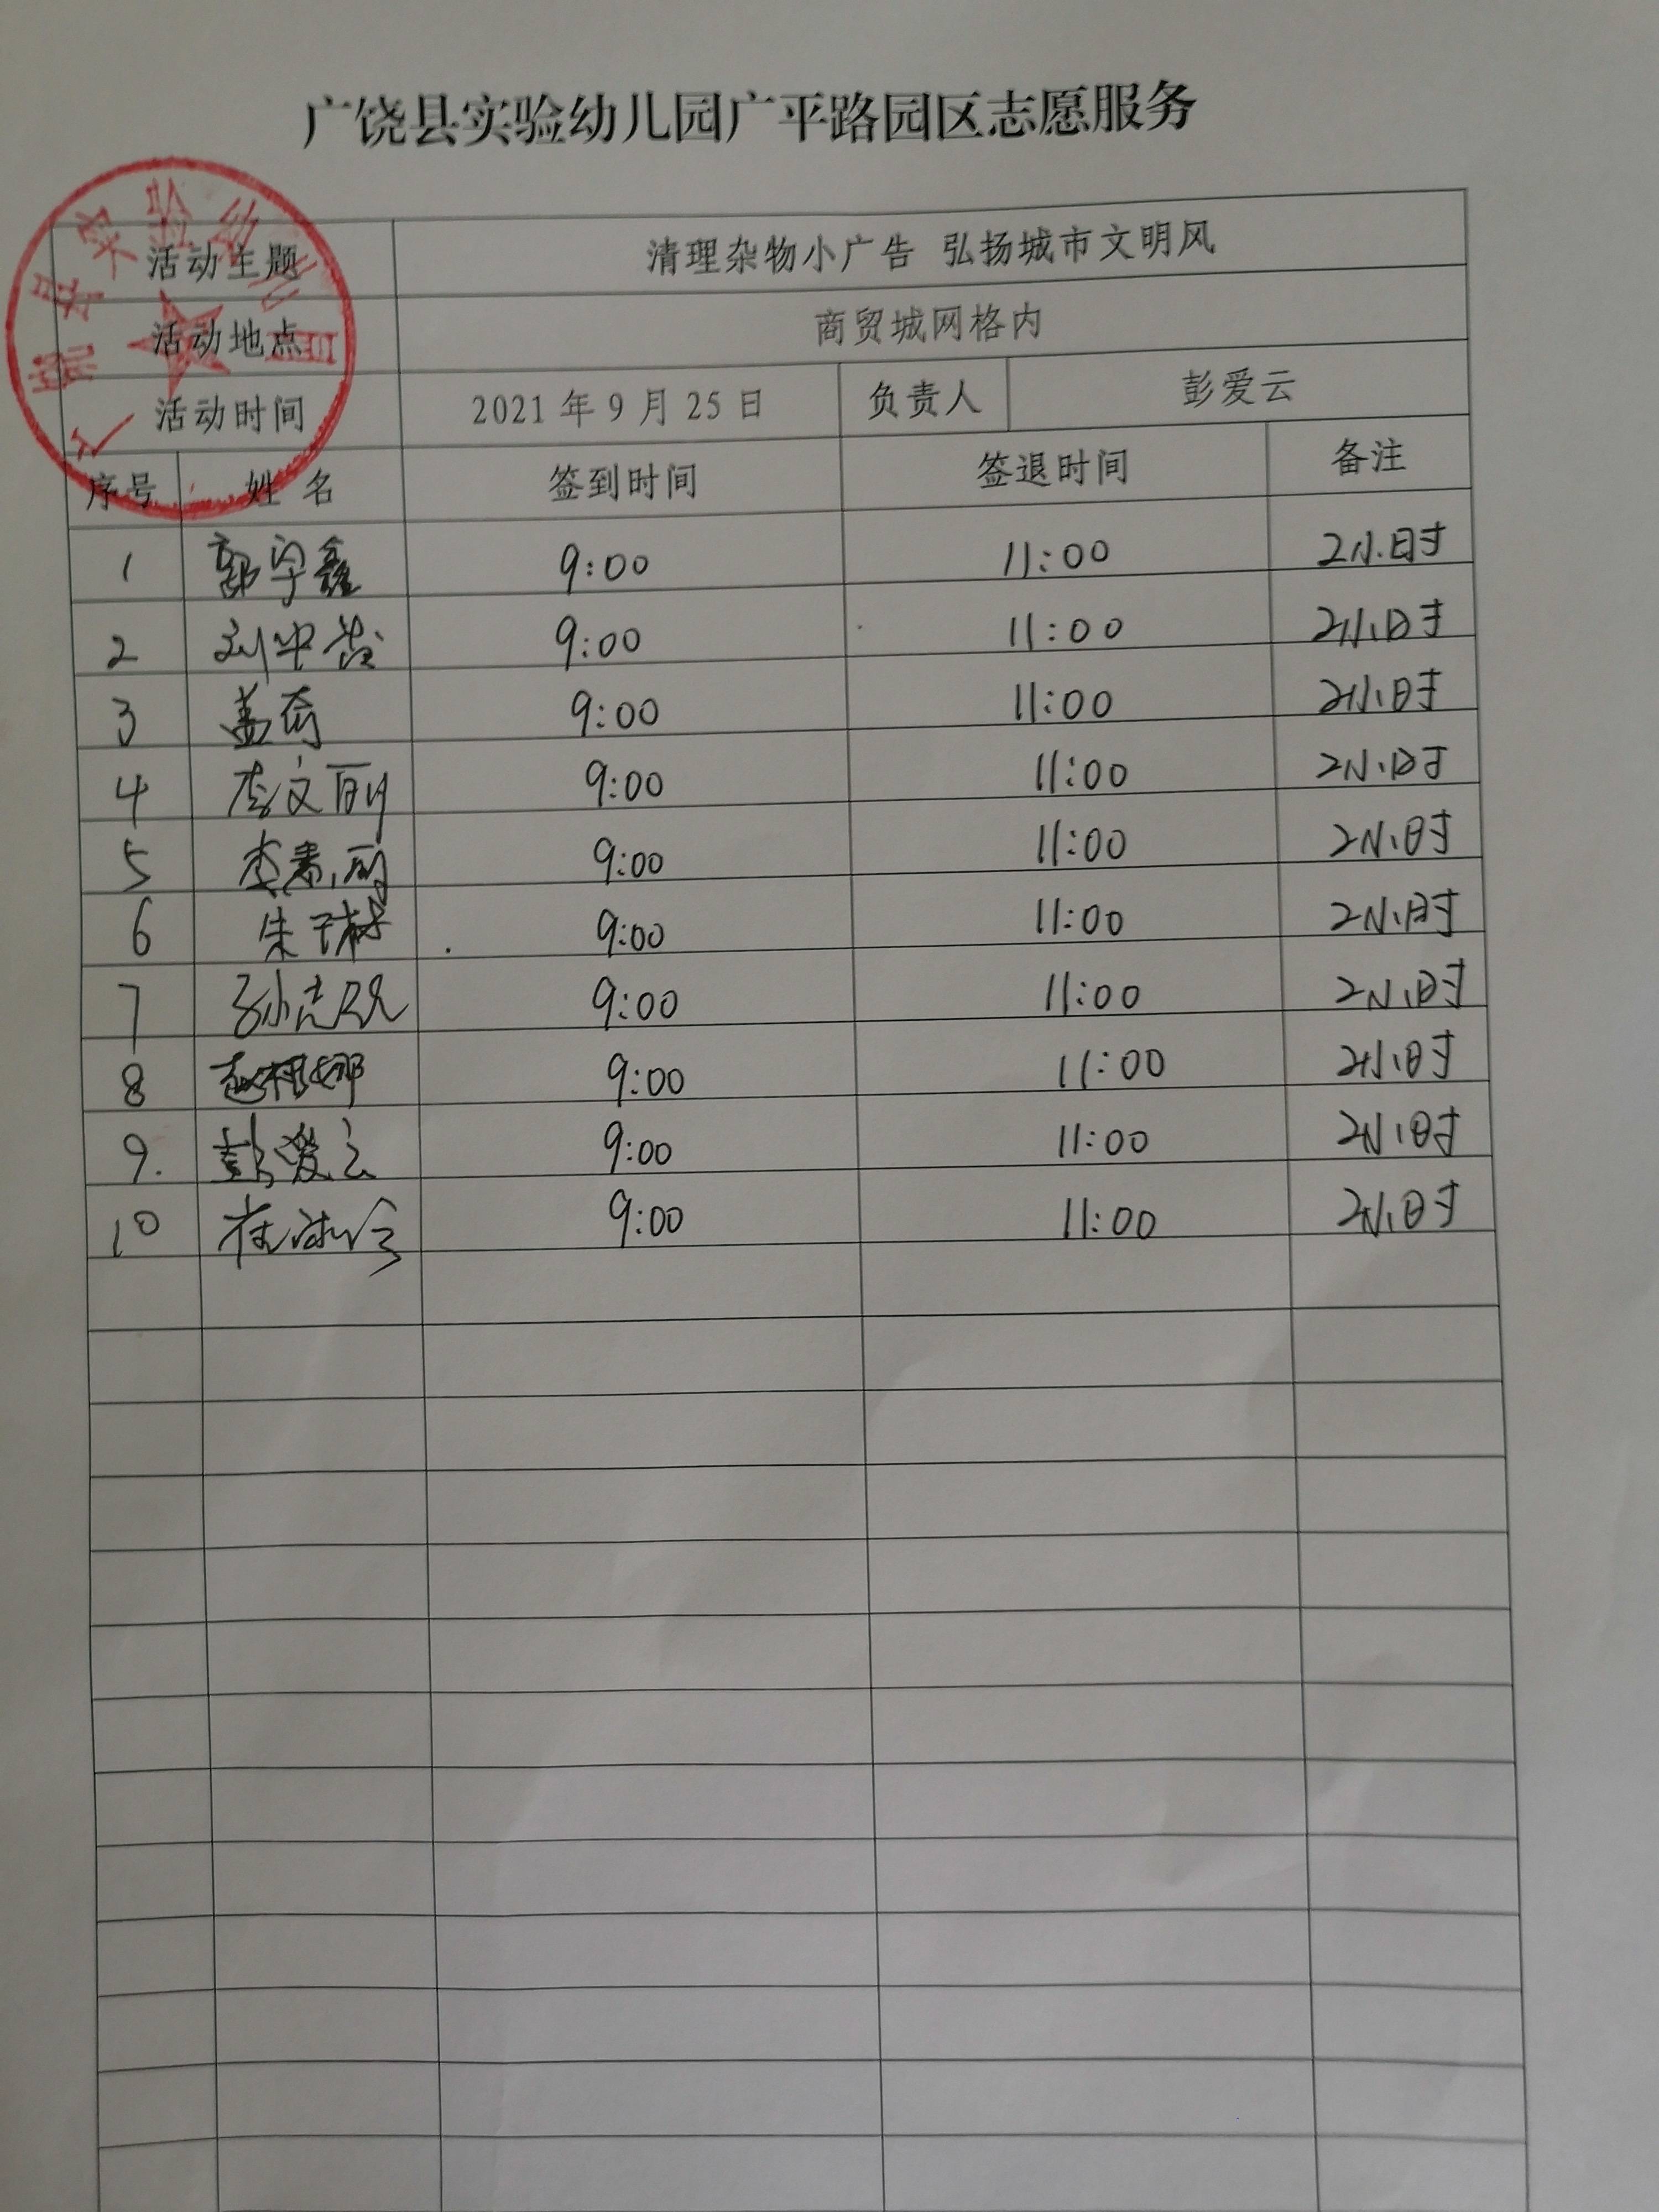 广饶县实验幼儿园广平路园区志愿服务
广饶县实验幼儿园
活动主题 清理杂物小广告 弘扬城市文明风
活动地点 商贸城网格内
活动时间 2021年9月25日 负责人 彭爱云
序号 姓名 签到时间 签退时间 备注
1 郭宇鑫 9:00 11:00 2小时
2 刘中 9:00 11:00 2小时
3 盖奇 9:00 11:00 2小时
4 李文丽 9:00 11:00 2小时
5 李素丽 9:00 11:00 2小时
6 朱子林 9:00 11:00 2小时
7 孙志 9:00 11:00 2小时
8 赵相娜 9:00 11:00 2小时
9. 彭爱云 9:00 11:00 2小时
10 崔 9:00 11:00 2小时